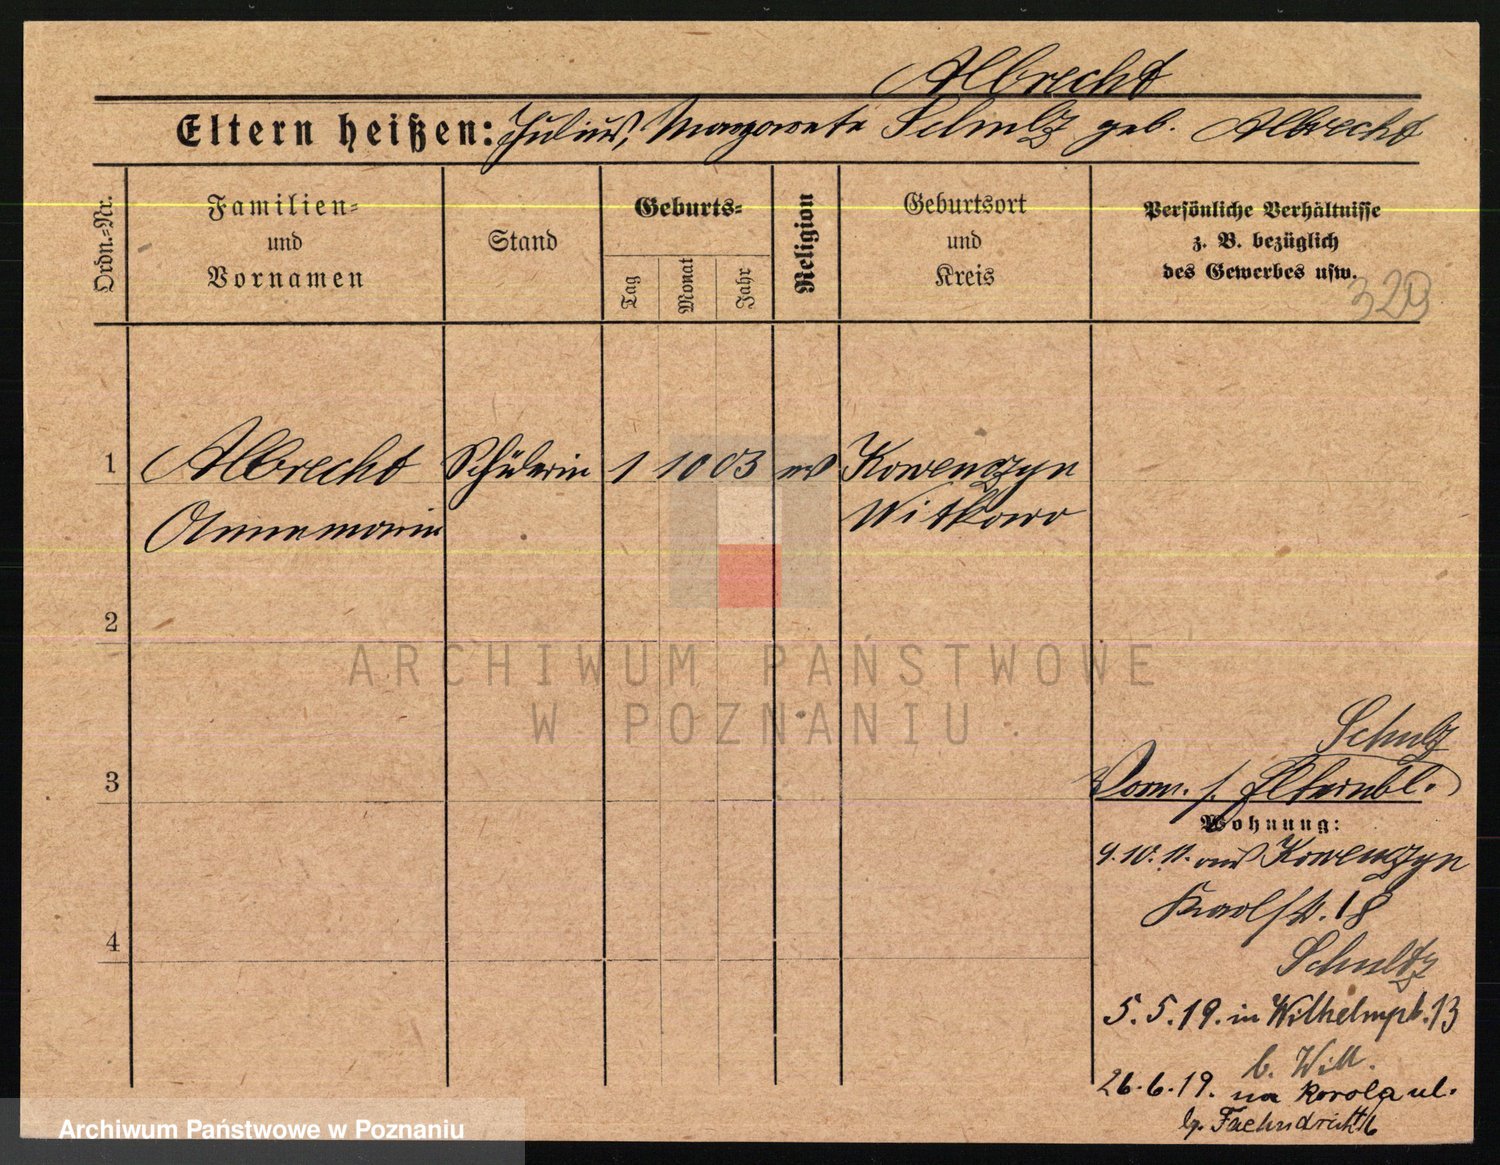 Albrecht
Eltern heißen: Julius, Margarete Schulz geb. Albrecht
Ordn.=Nr.
Familien=
und
Vornamen
Stand
Geburts=
Tag
Monat
Jahr
Religion
Geburtsort
und
Kreis
Persönliche Verhältnisse
z. B. bezüglich
des Gewerbes usw.
329
1
Albrecht
Annemarie
Schülerin
1
10
03
ev
Kowenczyn
Witkowo
2
ARCHIWUM PAŃSTWOWE
W POZNANIU
3
Schulz
Vorm. s. Elternbl.
Wohnung:
9.10.11. aus Kowenczyn
Karlstr. 18
4
Schultz
5.5.19. in Wilhelmpl. 13
b. Will.
26.6.19. na Karola ul.
Archiwum Państwowe w Poznaniu